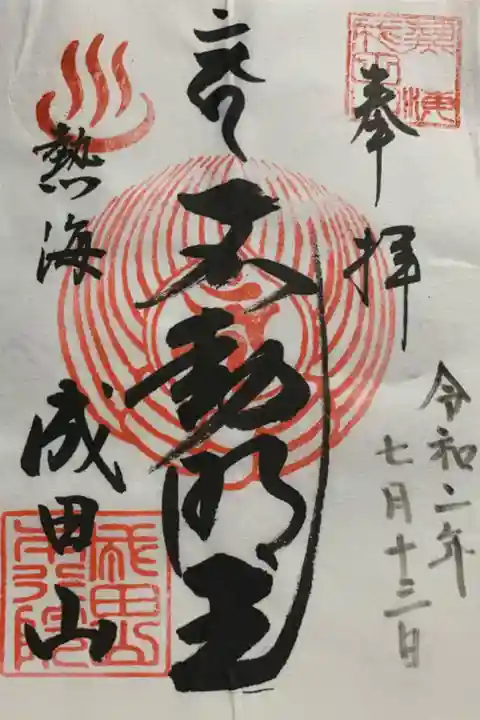 奉拝
令和二年
七月十三日
不動明王
熱海
成田山